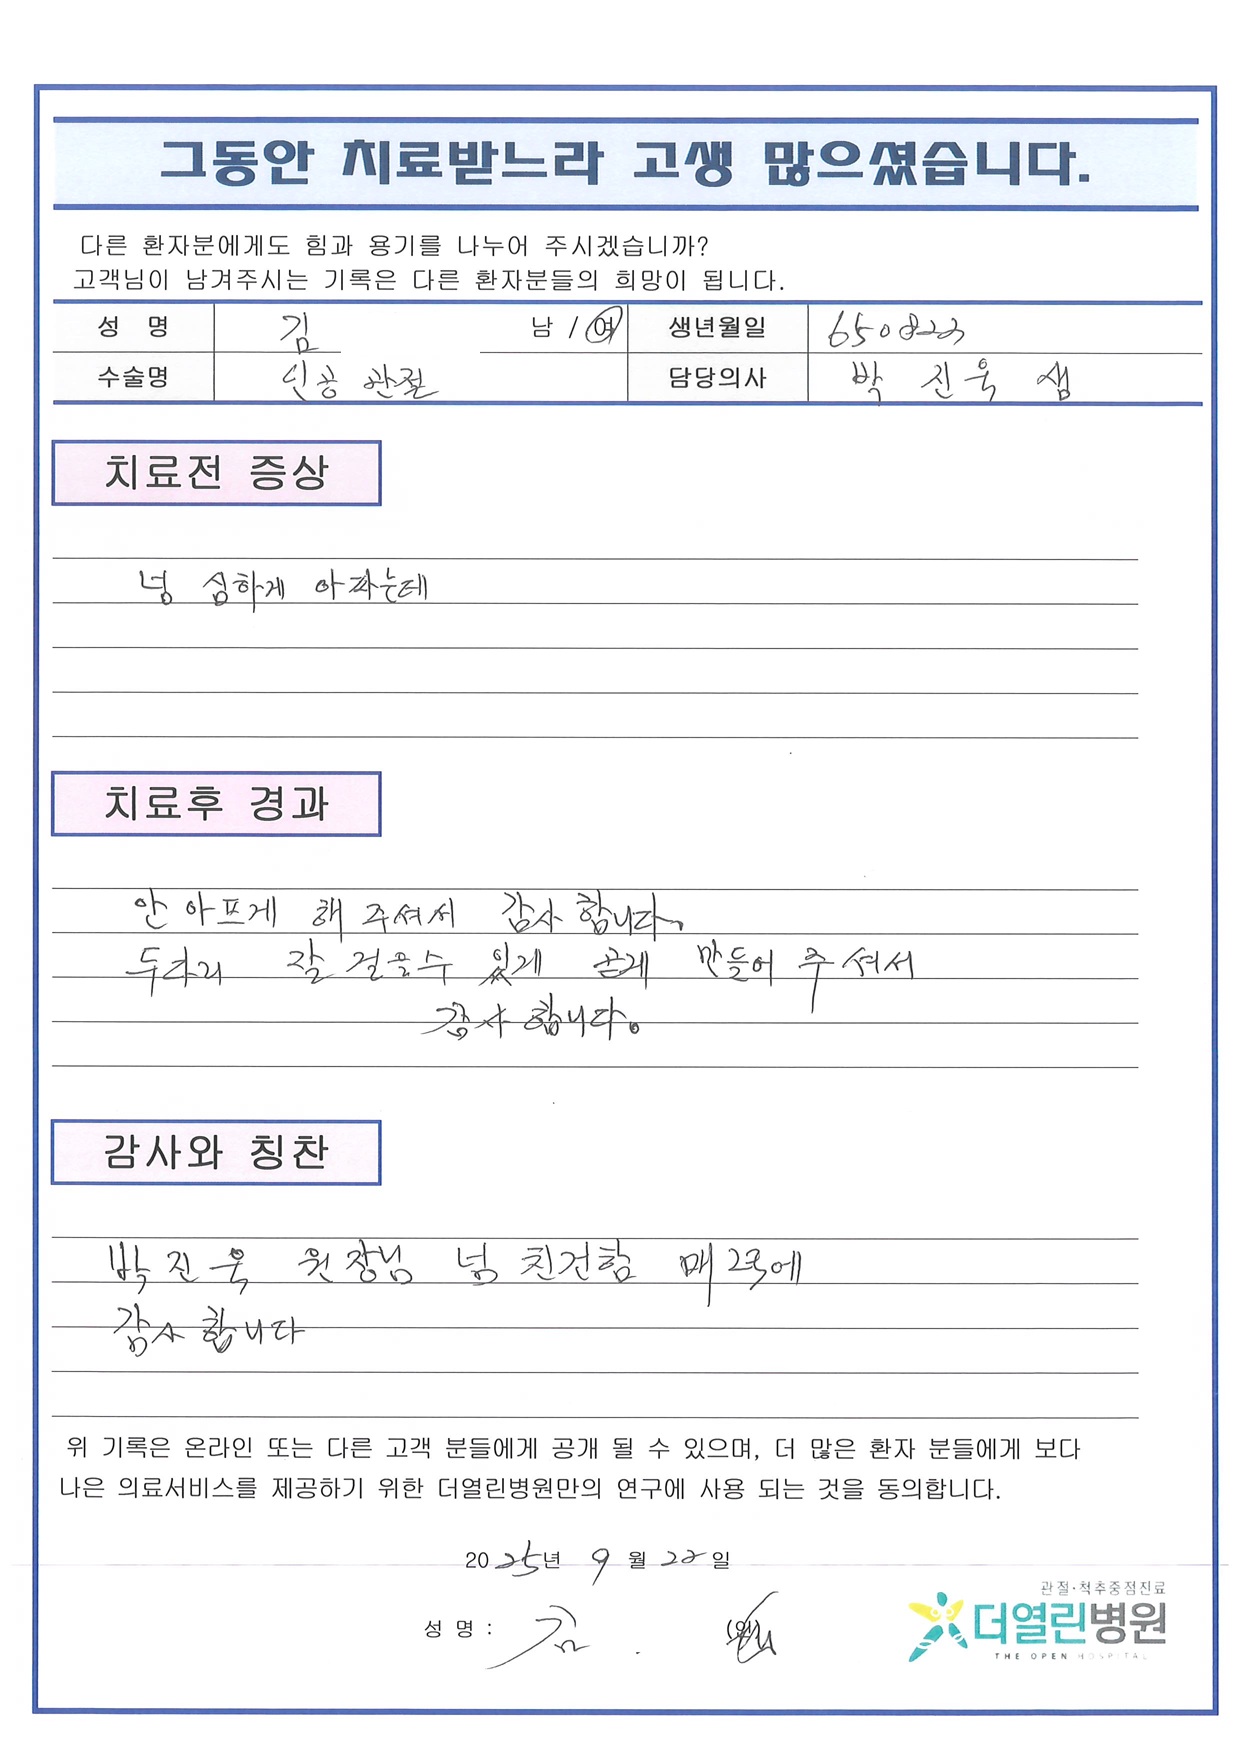 그동안 치료받느라 고생 많으셨습니다.
다른 환자분에게도 힘과 용기를 나누어 주시겠습니까?
고객님이 남겨주시는 기록은 다른 환자분들의 희망이 됩니다.
성 명 김 남 / 여 생년월일 650822
수술명 인공관절 담당의사 박 진욱 샘
치료전 증상
넘 심하게 아파는데
치료후 경과
안 아프게 해 주셔서 감사 합니다.
두다리 잘 걸을수 있게 곧게 만들어 주셔서
감사 합니다.
감사와 칭찬
박진욱 원장님 넘 친건함 매문에
감사 합니다
위 기록은 온라인 또는 다른 고객 분들에게 공개 될 수 있으며, 더 많은 환자 분들에게 보다
나은 의료서비스를 제공하기 위한 더열린병원만의 연구에 사용 되는 것을 동의합니다.
2025년 9월 22일
성 명 : 김 . (인)
관절·척추중점진료
더열린병원
THE OPEN HOSPITAL